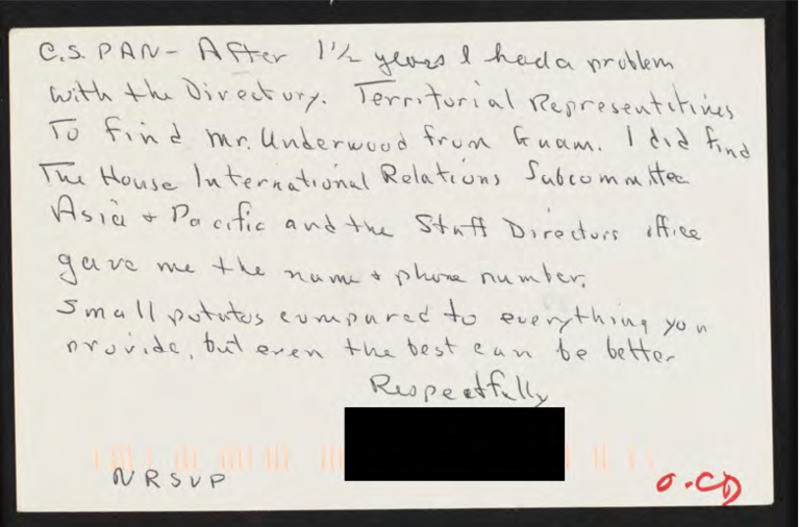 C.S. PAN - After 1 1/2 years I had a problem
with the Directory. Territorial Representitives
To find Mr. Underwood from Guam. I did find
The House International Relations Subcommittee
Asia + Pacific and the Staff Directors office
gave me the name + phone number.
Small potatos compared to everything you
provide, but even the best can be better
Respectfully
NRSVP